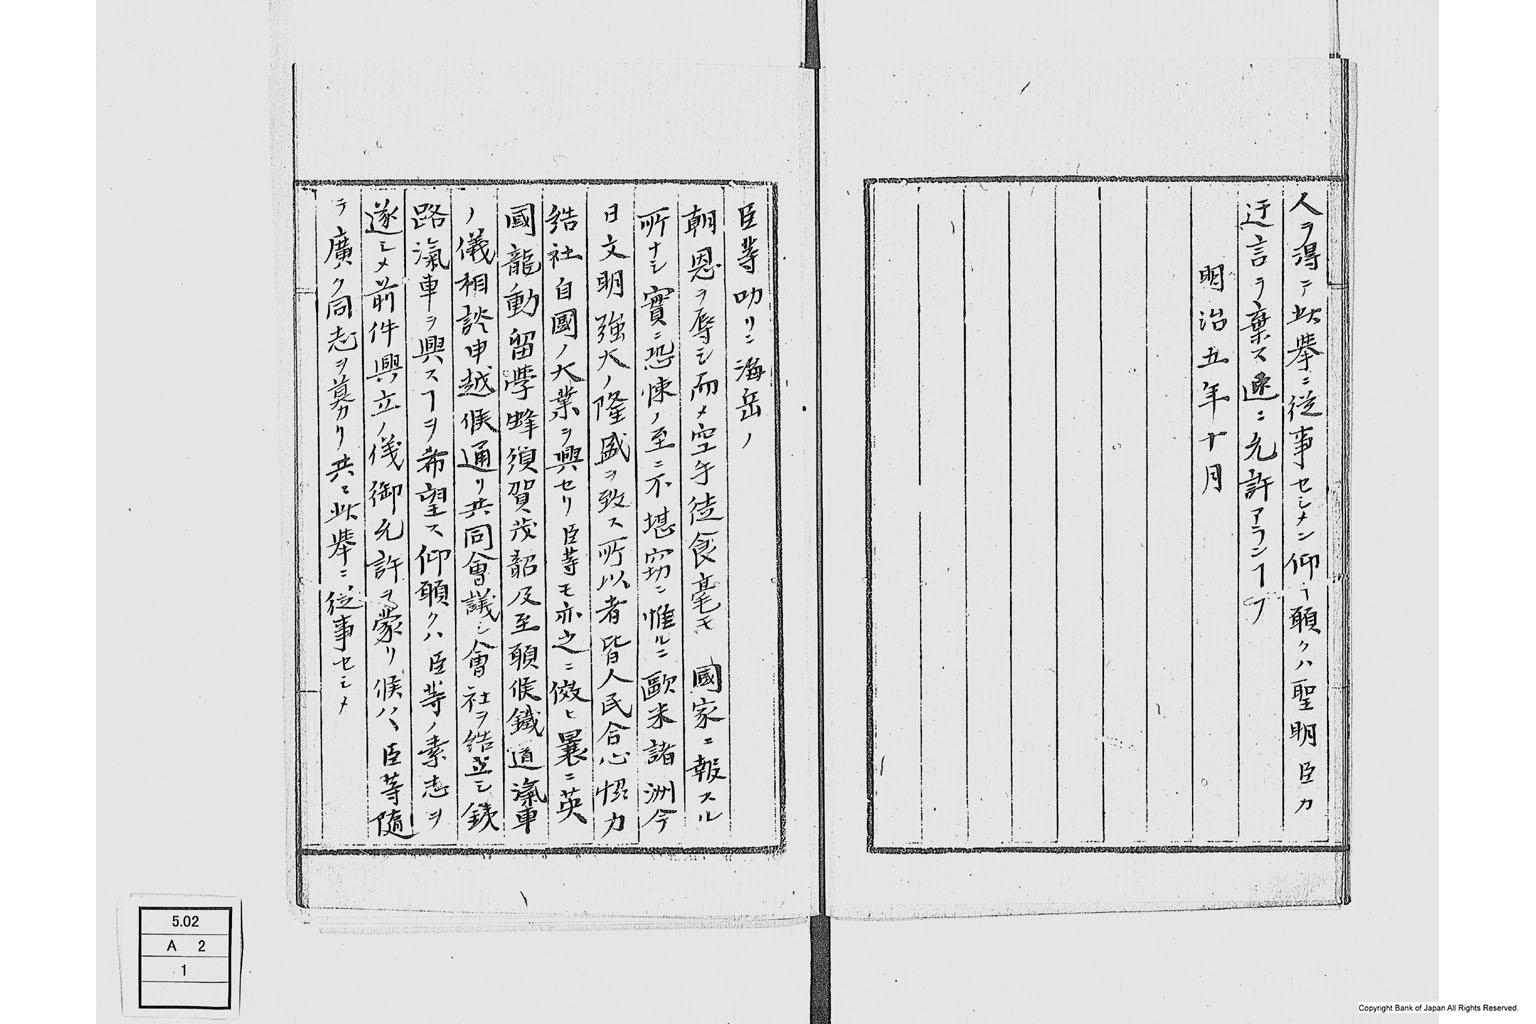 人ヲ得テ此挙ニ従事セシメン仰キ願クハ聖明臣カ
迂言ヲ棄ス速ニ允許アランヿヲ
明治五年十月
臣等叨リニ海岳ノ
朝恩ヲ辱シ而メ空手徒食毫モ 國家ニ報スル
所ナシ實ニ恐悚ノ至ニ不堪窃ニ惟ルニ歐米諸洲今
日文明強大ノ隆盛ヲ致ス所以者皆人民合心恊力
結社自國ノ大業ヲ興セリ臣等モ亦之ニ傚ヒ曩ニ英
國龍動留學蜂須賀茂韶及至願候鐵道滊車
ノ儀相談申越候通リ共同會議シ會社ヲ結立シ鉄
路滊車ヲ興スヿヲ希望ス仰願クハ臣等ノ素志ヲ
遂シメ前件興立ノ儀御允許ヲ蒙リ候ハヽ臣等随
テ廣ク同志ヲ募リ共ニ此挙ニ従事セシメ
5.02
A 2
1
Copyright Bank of Japan All Rights Reserved.